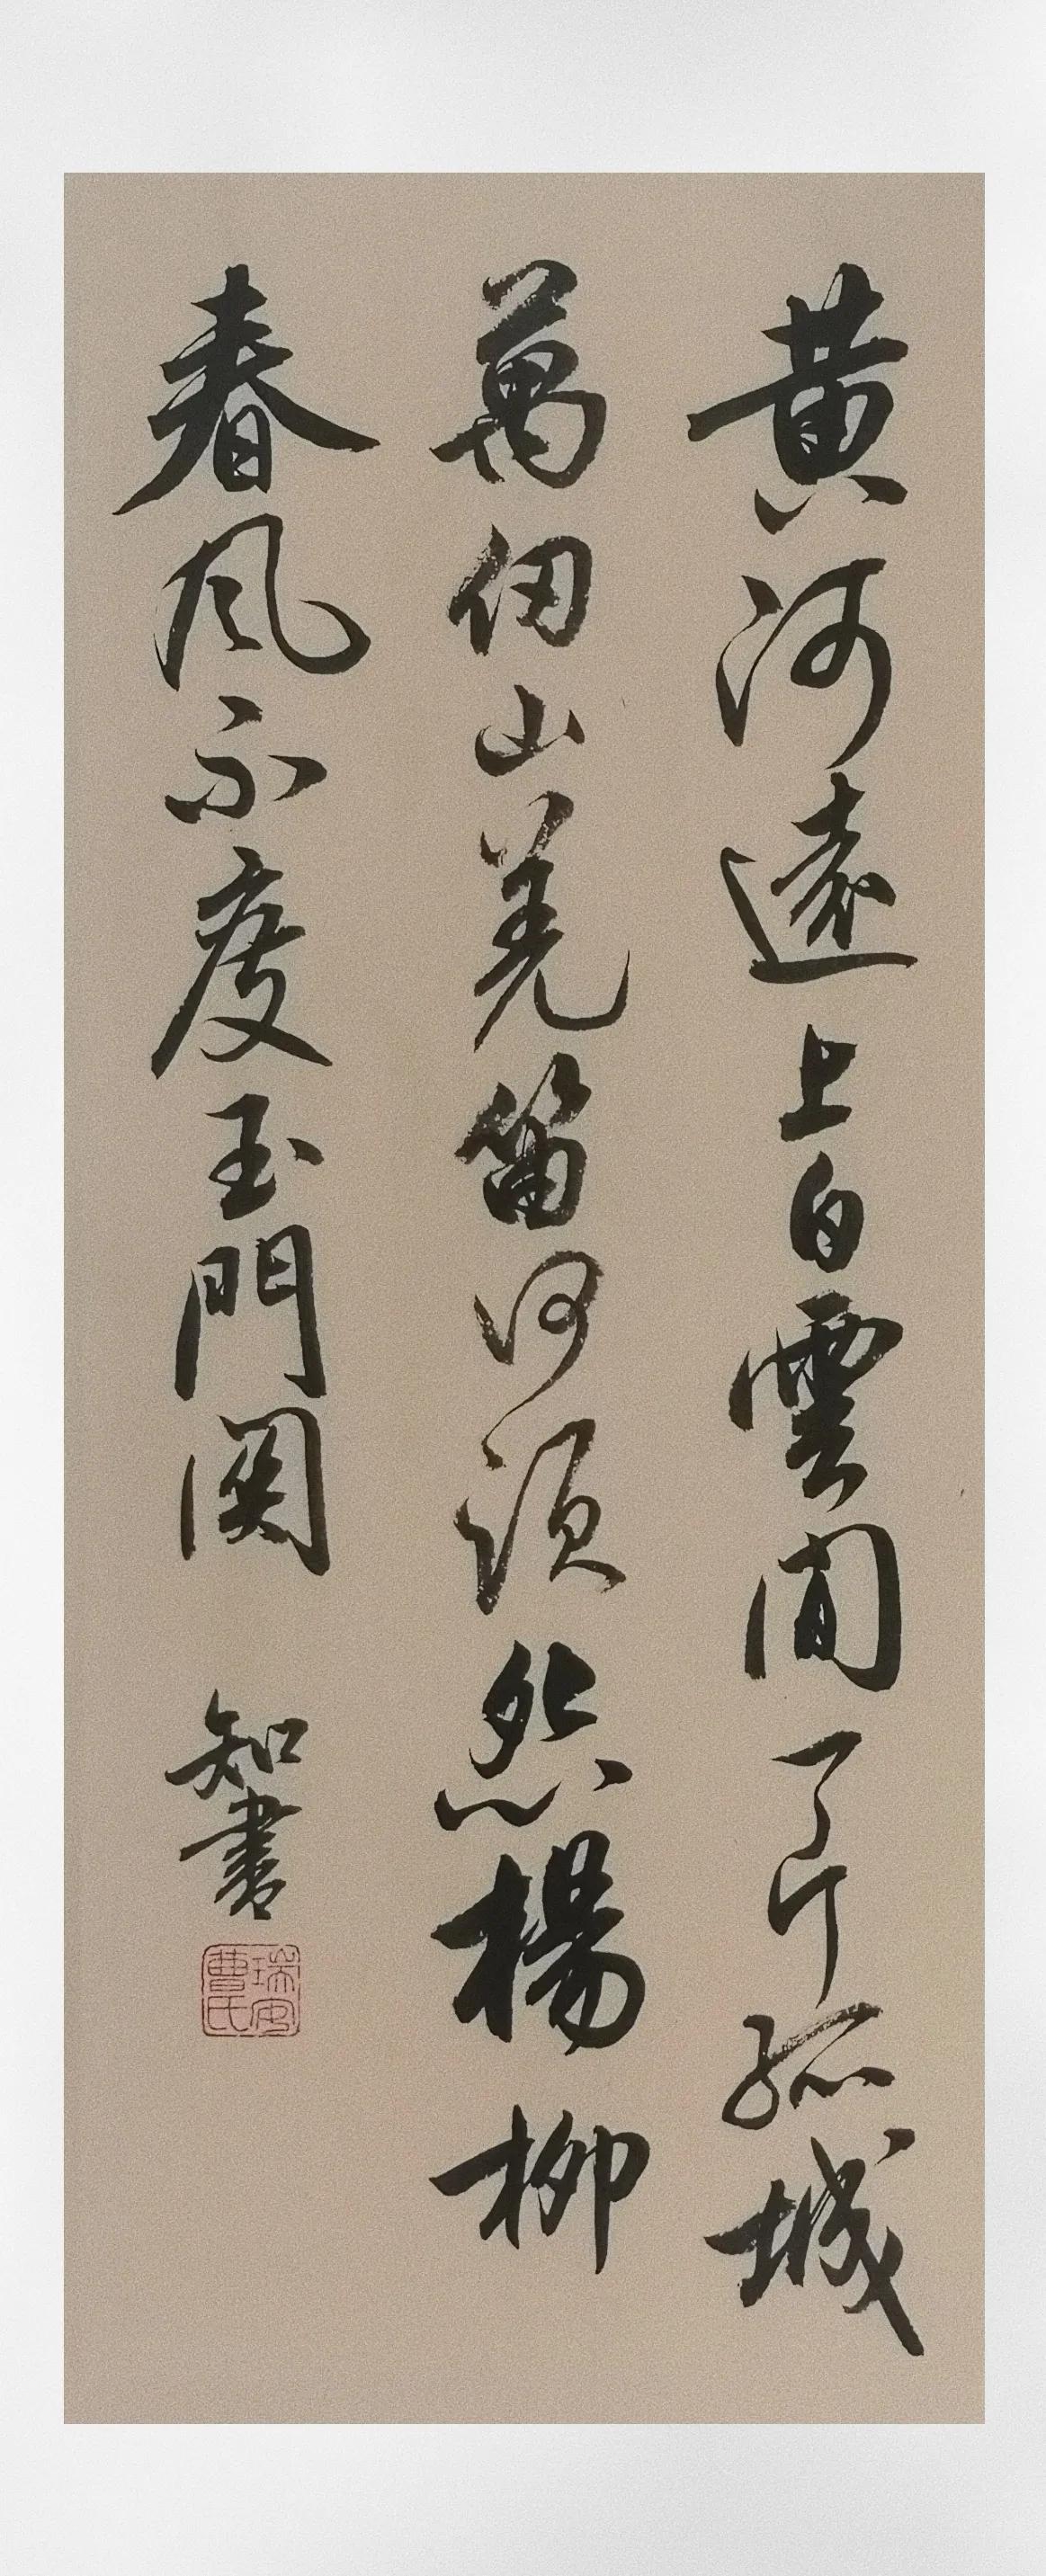 黃河遠上白雲間一片孤城
萬仞山羌笛何須怨楊柳
春風不度玉門関
知書
瑞安
曹氏